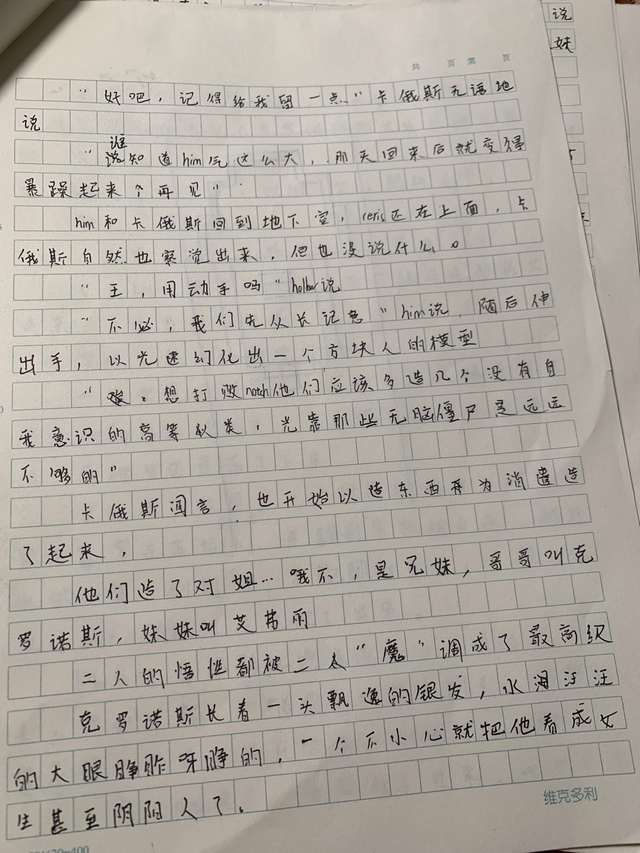 说
妹
共 页 第 页
“好吧，记得给我留一点”卡俄斯无语地
说
“谁知道him气这么大，那天回来后就变得
暴躁起来个再见”
him和卡俄斯回到地下室，reris还在上面，卡
俄斯自然也察觉出来，但也没说什么。
“王，用动手吗”holbur说
“不必，我们先从长记意”him说，随后伸
出手，以光速幻化出一个方块人的模型
“想打败notch他们应该多造几个没有自
我意识的高等似类，光靠那些无脑僵尸是远远
不够的”
卡俄斯闻言，也开始以造东西为消遣造
了起来，
他们造了对姐…哦不，是兄妹，哥哥叫克
罗诺斯，妹妹叫艾蒂丽
二人的悟性都被二人“魔”调成了最高级
克罗诺斯长着一头飘逸的银发，水泪汪汪
的大眼睁咋呀睁的，一个不小心就把他看成女
生甚至阴阳人了。
维克多利